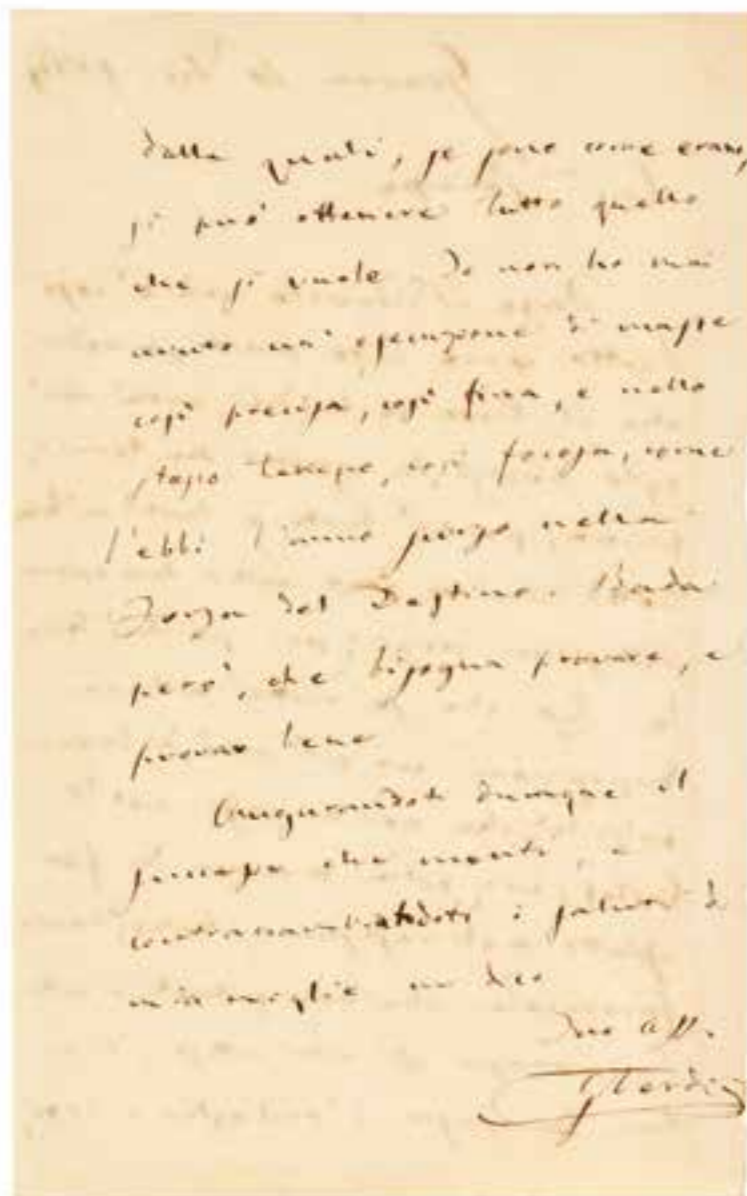 dalle quali, se sono come erano,
si può ottenere tutto quello
che si vuole Io non ho mai
avuto un' esecuzione di masse
così precisa, così fina, e nello
stesso tempo, così focosa, come
l'ebbi l'anno scorso nella
Forza del Destino. Bada
però, che bisogna provare, e
provar bene
Augurandoti dunque il
successo che meriti, e
contracambiandoti i saluti di
mia moglie mi dico
Tuo aff.
G Verdi